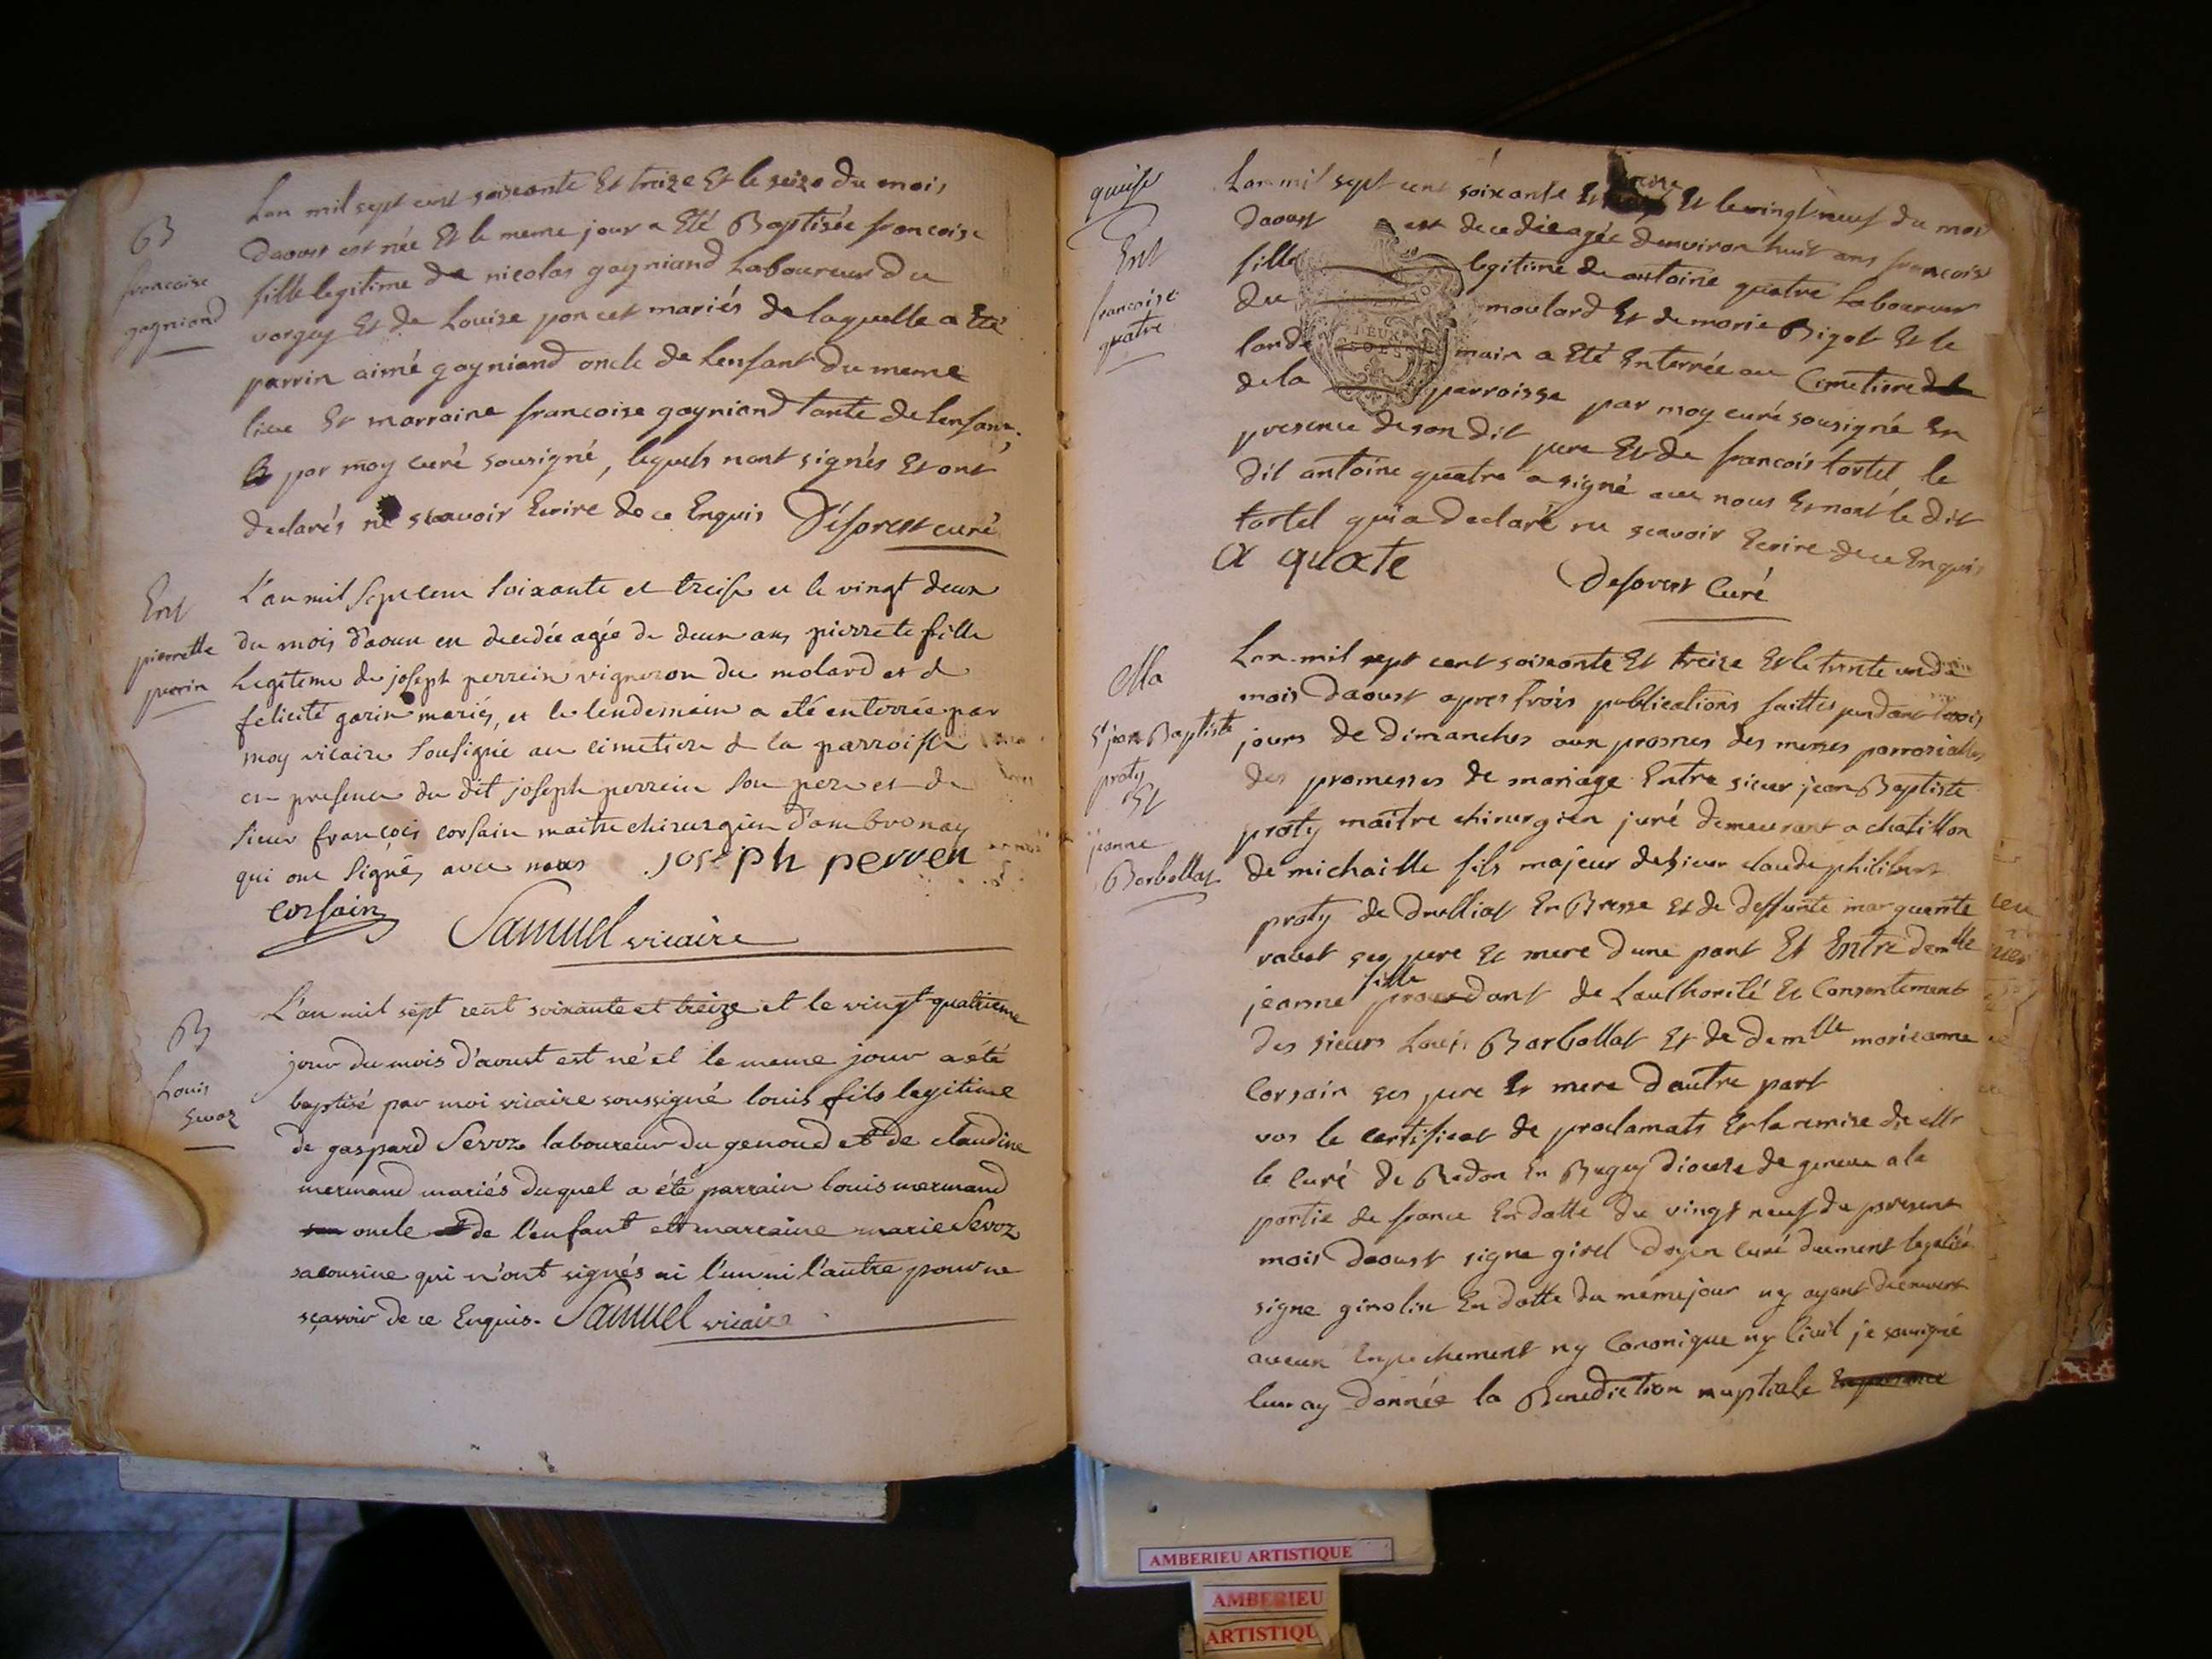 B
francoise
gogniand
Lan mil sept cent soixante Et treize Et le seize du mois
Daoust est née Et le meme jour a Eté Baptisée francoise
fille legitime de nicolas gogniand Laboureur du
vorgey Et de Louise poncet mariés de laquelle a Eté
parrin aimé gogniand oncle de Lenfant du meme
lieu Et marraine francoise gogniand tante de lenfant
par moy curé sousigné, lequels nont signés Et ont
declarés ne scavoir Ecrire de ce Enquis Déforest curé
Ent
pierrette
perrin
L'an mil sept cent soixante et treise et le vingt deux
du mois d'aoust en decedée agée de deux ans pierrete fille
Legitime de joseph perrein vigneron du molard et d
felicité garin mariés, et le lendemain a eté enterrée par
moy vicaire sousigné au cimetiere d la parroisse
en presence du dit joseph perrein son pere et de
sieur françois corsain maitre chirurgien d'ambronay
qui ont signés avec nous joseph perren
corsain Samuel vicaire
B
Louis
Sevoz
L'an mil sept cent soixante et treize et le vingt quatrieme
jour du mois d'aoust est né et le meme jour a été
baptisé par moi vicaire soussigné louis fils legitime
de gaspard Sevoz laboureur du genoud et de claudine
mermand mariés duquel a été parrain louis mermand
oncle de l'enfant et marraine marie Sevoz
sa cousine qui n'ont signés ni l'un ni l'autre pour ne
sçavoir de ce Enquis. Samuel vicaire
Ent
francoise
quatre
Lan mil sept cent soixante Et treize Et le vingt neuf du mois
daoust est decedée agée denviron huit ans francoise
fille legitime de antoine quatre Laboureur
du moulard Et de marie Bigot Et le
lande main a Eté Enterrée au Cimetiere
de la parroisse par moy curé sousigné En
presence de son dit pere Et de francois tortel, le
dit antoine quatre a signé avec nous Et non le dit
tortel qui a declaré ne scavoir Ecrire de ce Enquis
a quate Deforest Curé
Ma
sr jean Baptiste
proty
Et
jeanne
Borbollat
Lan mil sept cent soixante Et treize Et le trente un du
mois Daoust apres trois publications faittes pendant trois
jours de Dimanches aux prosnes des messes parrosialles
des promesses de mariage Entre sieur jean Baptiste
proty maitre chirurgien juré demeurant a chatillon
de michaille fils majeur de sieur claude philibert
proty de Drulliat En Bresse Et de deffunte marguerite
rabut ses pere Et mere d'une part Et Entre demlle
jeanne fille procedant de Lauthorité Et Consentement
des sieurs Louis Borbollat Et de demlle marieanne
Corsain ses pere Et mere d'autre part
vus le certificat de proclamats Et la remise de Mr
le curé de Redon En Bugey diocese de geneve a la
partie de france En datte du vingt neuf du present
mois daoust signe girel doyen curé duement legalisé
signe girolin En datte du meme jour ny ayant decouvert
aucun Enpechement ny Canonique ny Civil je sousigné
leur ay donnée la Benediction nuptiale
DEUX
AMBERIEU ARTISTIQUE
AMBERIEU
ARTISTIQU